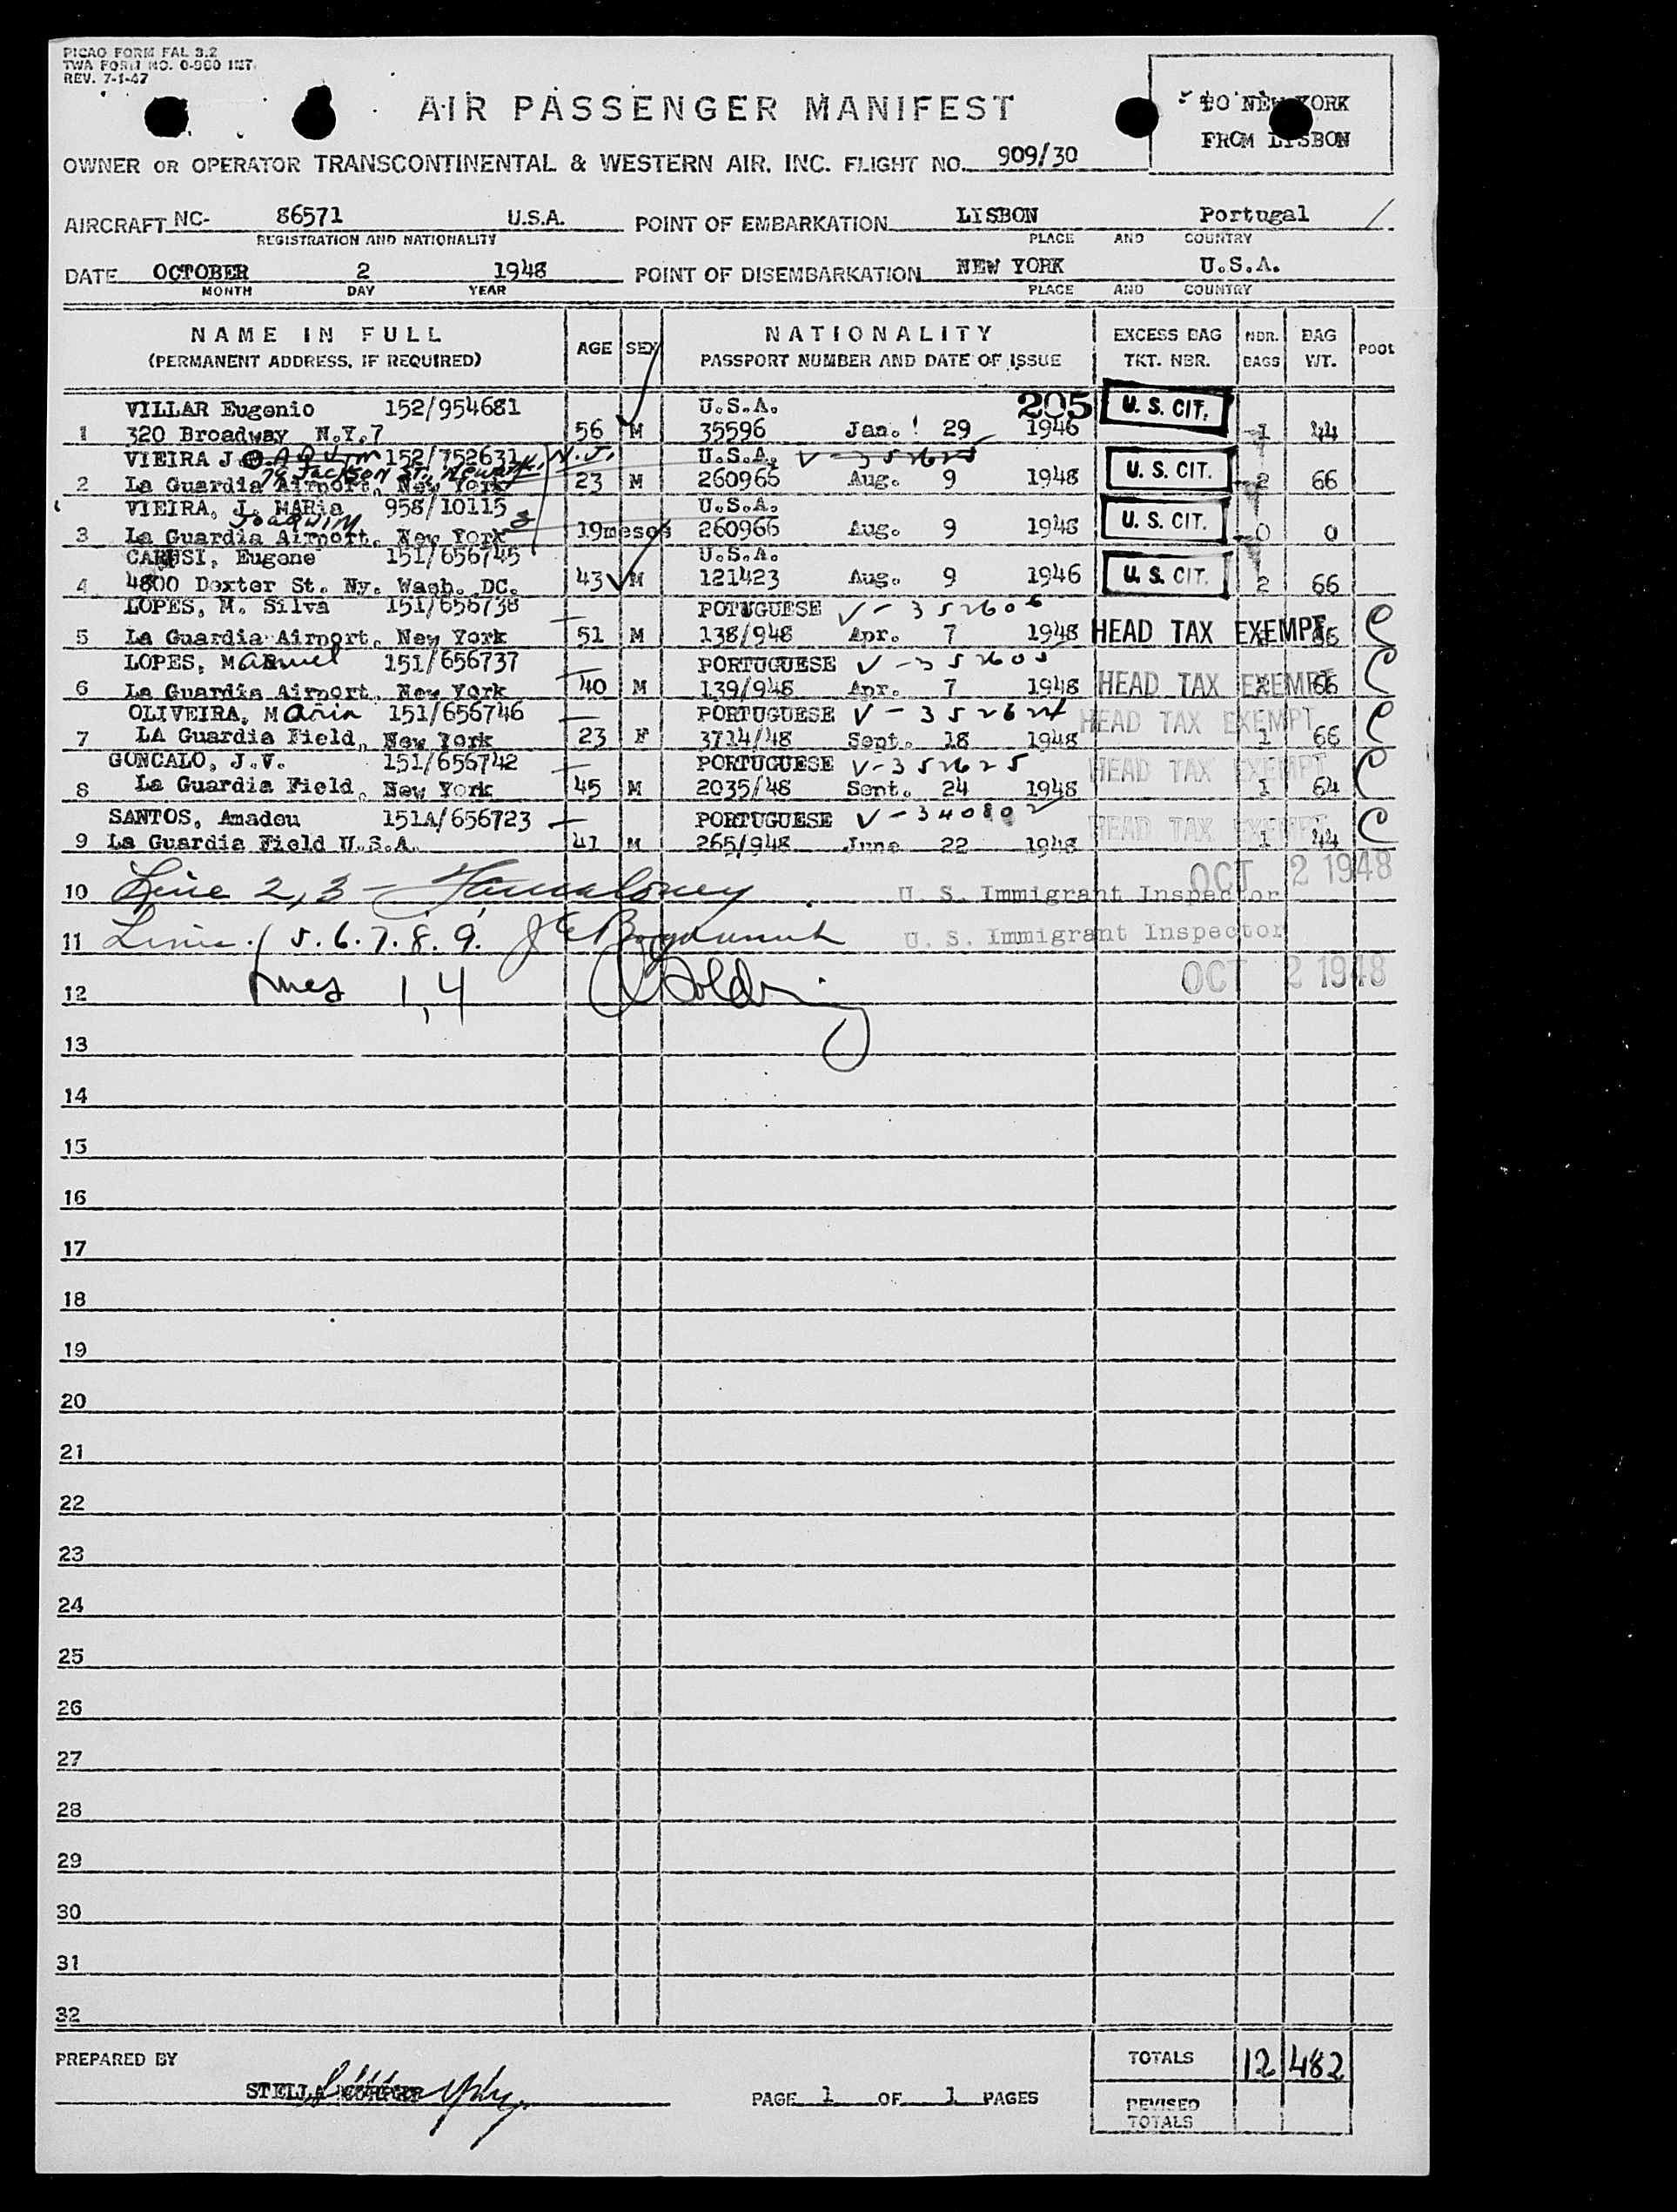 PICAO FORM FAL 3.2
TWA FORM NO. 0-960 INT.
REV. 7-1-47
AIR PASSENGER MANIFEST
TO NEW YORK
FROM LISBON
OWNER OR OPERATOR TRANSCONTINENTAL & WESTERN AIR. INC. FLIGHT NO. 909/30
AIRCRAFT NC- 86571 U.S.A. POINT OF EMBARKATION LISBON Portugal
REGISTRATION AND NATIONALITY PLACE AND COUNTRY
DATE OCTOBER 2 1948 POINT OF DISEMBARKATION NEW YORK U.S.A.
MONTH DAY YEAR PLACE AND COUNTRY
NAME IN FULL AGE SEX NATIONALITY EXCESS BAG NBR. BAG POOL
(PERMANENT ADDRESS, IF REQUIRED) PASSPORT NUMBER AND DATE OF ISSUE TKT. NBR. BAGS WT.
VILLAR Eugenio 152/954681 U.S.A. 205 U. S. CIT.
1 320 Broadway N.Y.7 56 M 35596 Jan. 29 1946 1 44
VIEIRA JOAQUIM 152/752631 U.S.A. V-352623
76 Jackson St. Newark, N.J.
2 La Guardia Airport, New York 23 M 260965 Aug. 9 1948 U. S. CIT. 2 66
VIEIRA, J. MARia 958/10115 U.S.A.
Joaquim
3 La Guardia Airport, New York 19meses 260966 Aug. 9 1948 U. S. CIT. 0 0
CARUSI, Eugene 151/656745 U.S.A.
4 4800 Dexter St. Ny. Wash. DC. 43 M 121423 Aug. 9 1946 U. S. CIT. 2 66
LOPES, M. Silva 151/656738 POTUGUESE V-352606
5 La Guardia Airport, New York 51 M 138/948 Apr. 7 1948 HEAD TAX EXEMPT 66
LOPES, Manuel 151/656737 PORTUGUESE V-352605
6 La Guardia Airport, New York 40 M 139/948 Apr. 7 1948 HEAD TAX EXEMPT 66
OLIVEIRA, Maria 151/656746 PORTUGUESE V-352624
7 LA Guardia Field, New York 23 F 3714/48 Sept. 18 1948 HEAD TAX EXEMPT 1 66
GONCALO, J.V. 151/656742 PORTUGUESE V-352625
8 La Guardia Field, New York 45 M 2035/48 Sept. 24 1948 HEAD TAX EXEMPT 1 64
SANTOS, Amadeu 151A/656723 PORTUGUESE V-340802
9 La Guardia Field U.S.A. 41 M 265/948 June 22 1948 HEAD TAX EXEMPT 1 44
10 Line 2,3 - U. S. Immigrant Inspector OCT 2 1948
11 Lines 5.6.7.8.9. U. S. Immigrant Inspector
12 Lines 1,4 OCT 2 1948
13
14
15
16
17
18
19
20
21
22
23
24
25
26
27
28
29
30
31
32
PREPARED BY TOTALS 12 482
STELLA
PAGE 1 OF 1 PAGES
REVISED
TOTALS